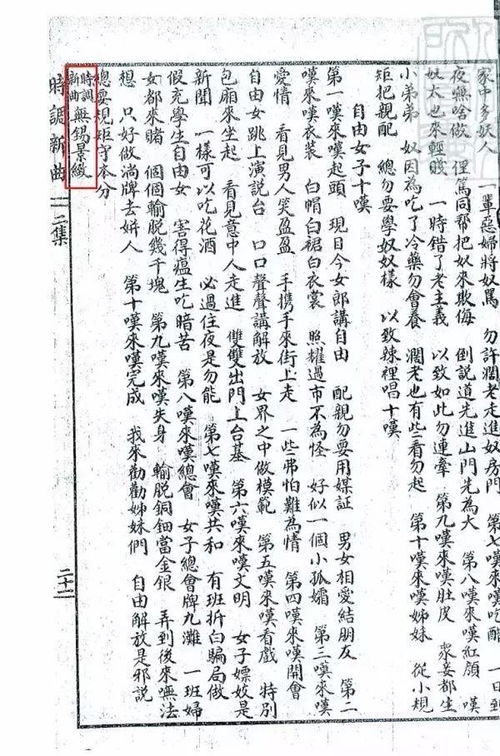 家中多妖人 一羣惡婦將奴罵 勿許濶老走進奴房門 第七嘆來嘆吃醋 一日到
夜無啥做 俚篤同帮把奴來欺侮 倒說道先進山門先為大 第八嘆來嘆紅顔 嘆
奴太也來輕賤 一時錯了老主義 以致如此勿連牽 第九嘆來嘆肚皮 衆妾都生
小弟弟 奴因為吃了冷藥勿會養 濶老也有些看勿起 第十嘆來嘆姊妹 從小規
矩把親配 總勿要學奴奴樣 以致辣裡唱十嘆
自由女子十嘆
第一嘆來嘆起頭 現日今女郎講自由 配親勿要用媒証 男女相愛結朋友 第二
嘆來嘆衣裝 白帽白裙白衣裳 照耀過市不為怪 好似一個小孤孀 第三嘆來嘆
愛情 看見男人笑盈盈 手携手來街上走 一些弗怕難為情 第四嘆來嘆開會
自由女跳上演說台 口口聲聲講解放 女界之中做模範 第五嘆來嘆看戲 特別
包廂來坐起 看見意中人走進 雙雙出門上台基 第六嘆來嘆文明 女子嫖妓是
新聞 一樣可以吃花酒 必過住夜是勿能 第七嘆來嘆共和 有班折白騙局做
假充學生自由女 害得瘟生吃暗苦 第八嘆來嘆總會 女子總會牌九灘 一班婦
女都來賭 個個輸脫幾千塊 第九嘆來嘆失身 輸脫銅鈿當金銀 弄到後來無法
想 只好做淌牌去姘人 第十嘆來嘆完成 我來勸勸姊妹們 自由解放是邪說
總要規矩守本分
時調新曲 無錫景緻
時調新曲 二集 二十一